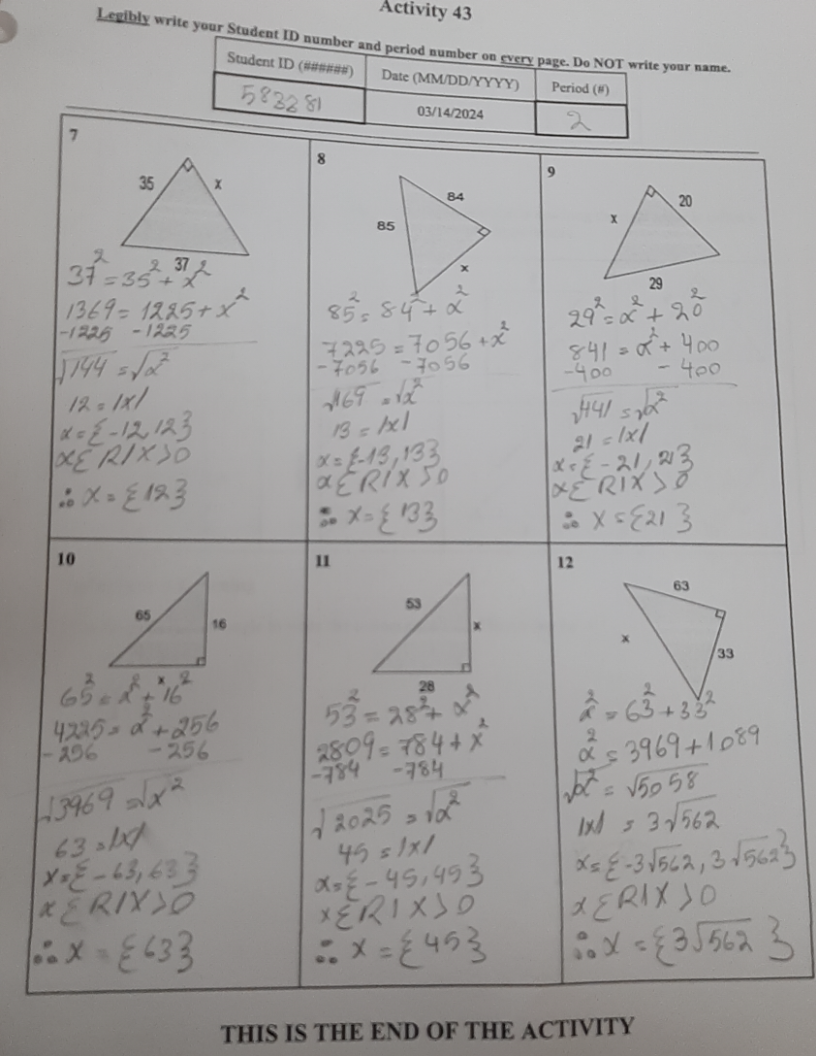 Activity 43
Legibly write your Student ID number and period number on every page. Do NOT write your name.
Student ID (######) Date (MM/DD/YYYY) Period (#)
583281 03/14/2024 2
7
35 x
37
37² = 35² + x²
1369 = 1225 + x²
-1225 -1225
√144 = √x²
12 = |x|
x = {-12,12}
x ∈ R | X > 0
∴ x = {12}
8
84
85
x
85² = 84² + x²
7225 = 7056 + x²
-7056 -7056
√169 = √x²
13 = |x|
x = {-13, 13}
x ∈ R | X > 0
∴ x = {13}
9
20
x
29
29² = x² + 20²
841 = x² + 400
-400 -400
√441 = √x²
21 = |x|
x = {-21, 21}
x ∈ R | X > 0
∴ x = {21}
10
65 16
x
65² = x² + 16²
4225 = x² + 256
-256 -256
√3969 = √x²
63 = |x|
x = {-63, 63}
x ∈ R | X > 0
∴ x = {63}
11
53 x
28
53² = 28² + x²
2809 = 784 + x²
-784 -784
√2025 = √x²
45 = |x|
x = {-45, 45}
x ∈ R | X > 0
∴ x = {45}
12
63
x
33
x² = 63² + 33²
x² = 3969 + 1089
√x² = √5058
|x| = 3√562
x = {-3√562, 3√562}
x ∈ R | X > 0
∴ x = {3√562}
THIS IS THE END OF THE ACTIVITY